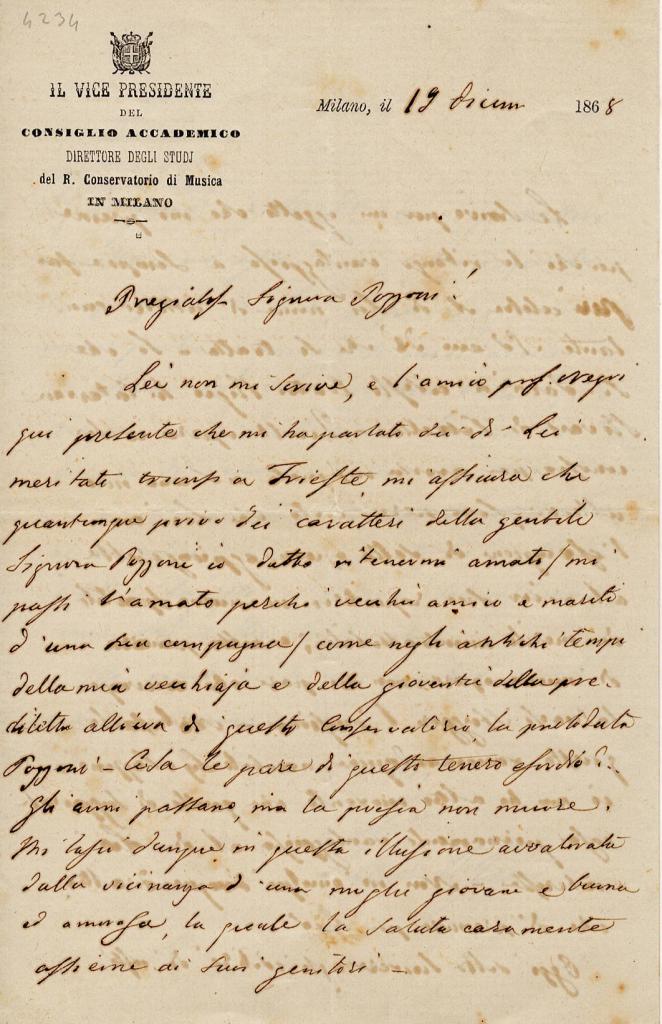 4234
IL VICE PRESIDENTE
DEL
CONSIGLIO ACCADEMICO
DIRETTORE DEGLI STUDJ
del R. Conservatorio di Musica
IN MILANO
Milano, il 19 Dicem 1868
Pregiatss Signora Pozzoni!
Lei non mi scrive, e l'amico prof. Negri
qui presente che mi ha parlato dei di Lei
meritati trionfi a Trieste, mi assicura che
quantunque privo dei caratteri della gentile
Signora Pozzoni io debbo ritenermi amato/mi
passi l'amato perchè vecchio amico e marito
d'una sua compagna/come negli antichi tempi
della mia vecchiaja e della gioventù della pre-
diletta allieva di questo Conservatorio la prelodata
Pozzoni - Cosa le pare di questo tenero esordio?..
Gli anni passano, ma la poesia non muore.
Mi lasci dunque in questa illusione avvalorata
dalla vicinanza d'una moglie giovane e buona
ed amorosa, la quale la saluta caramente
assieme ai suoi genitori -